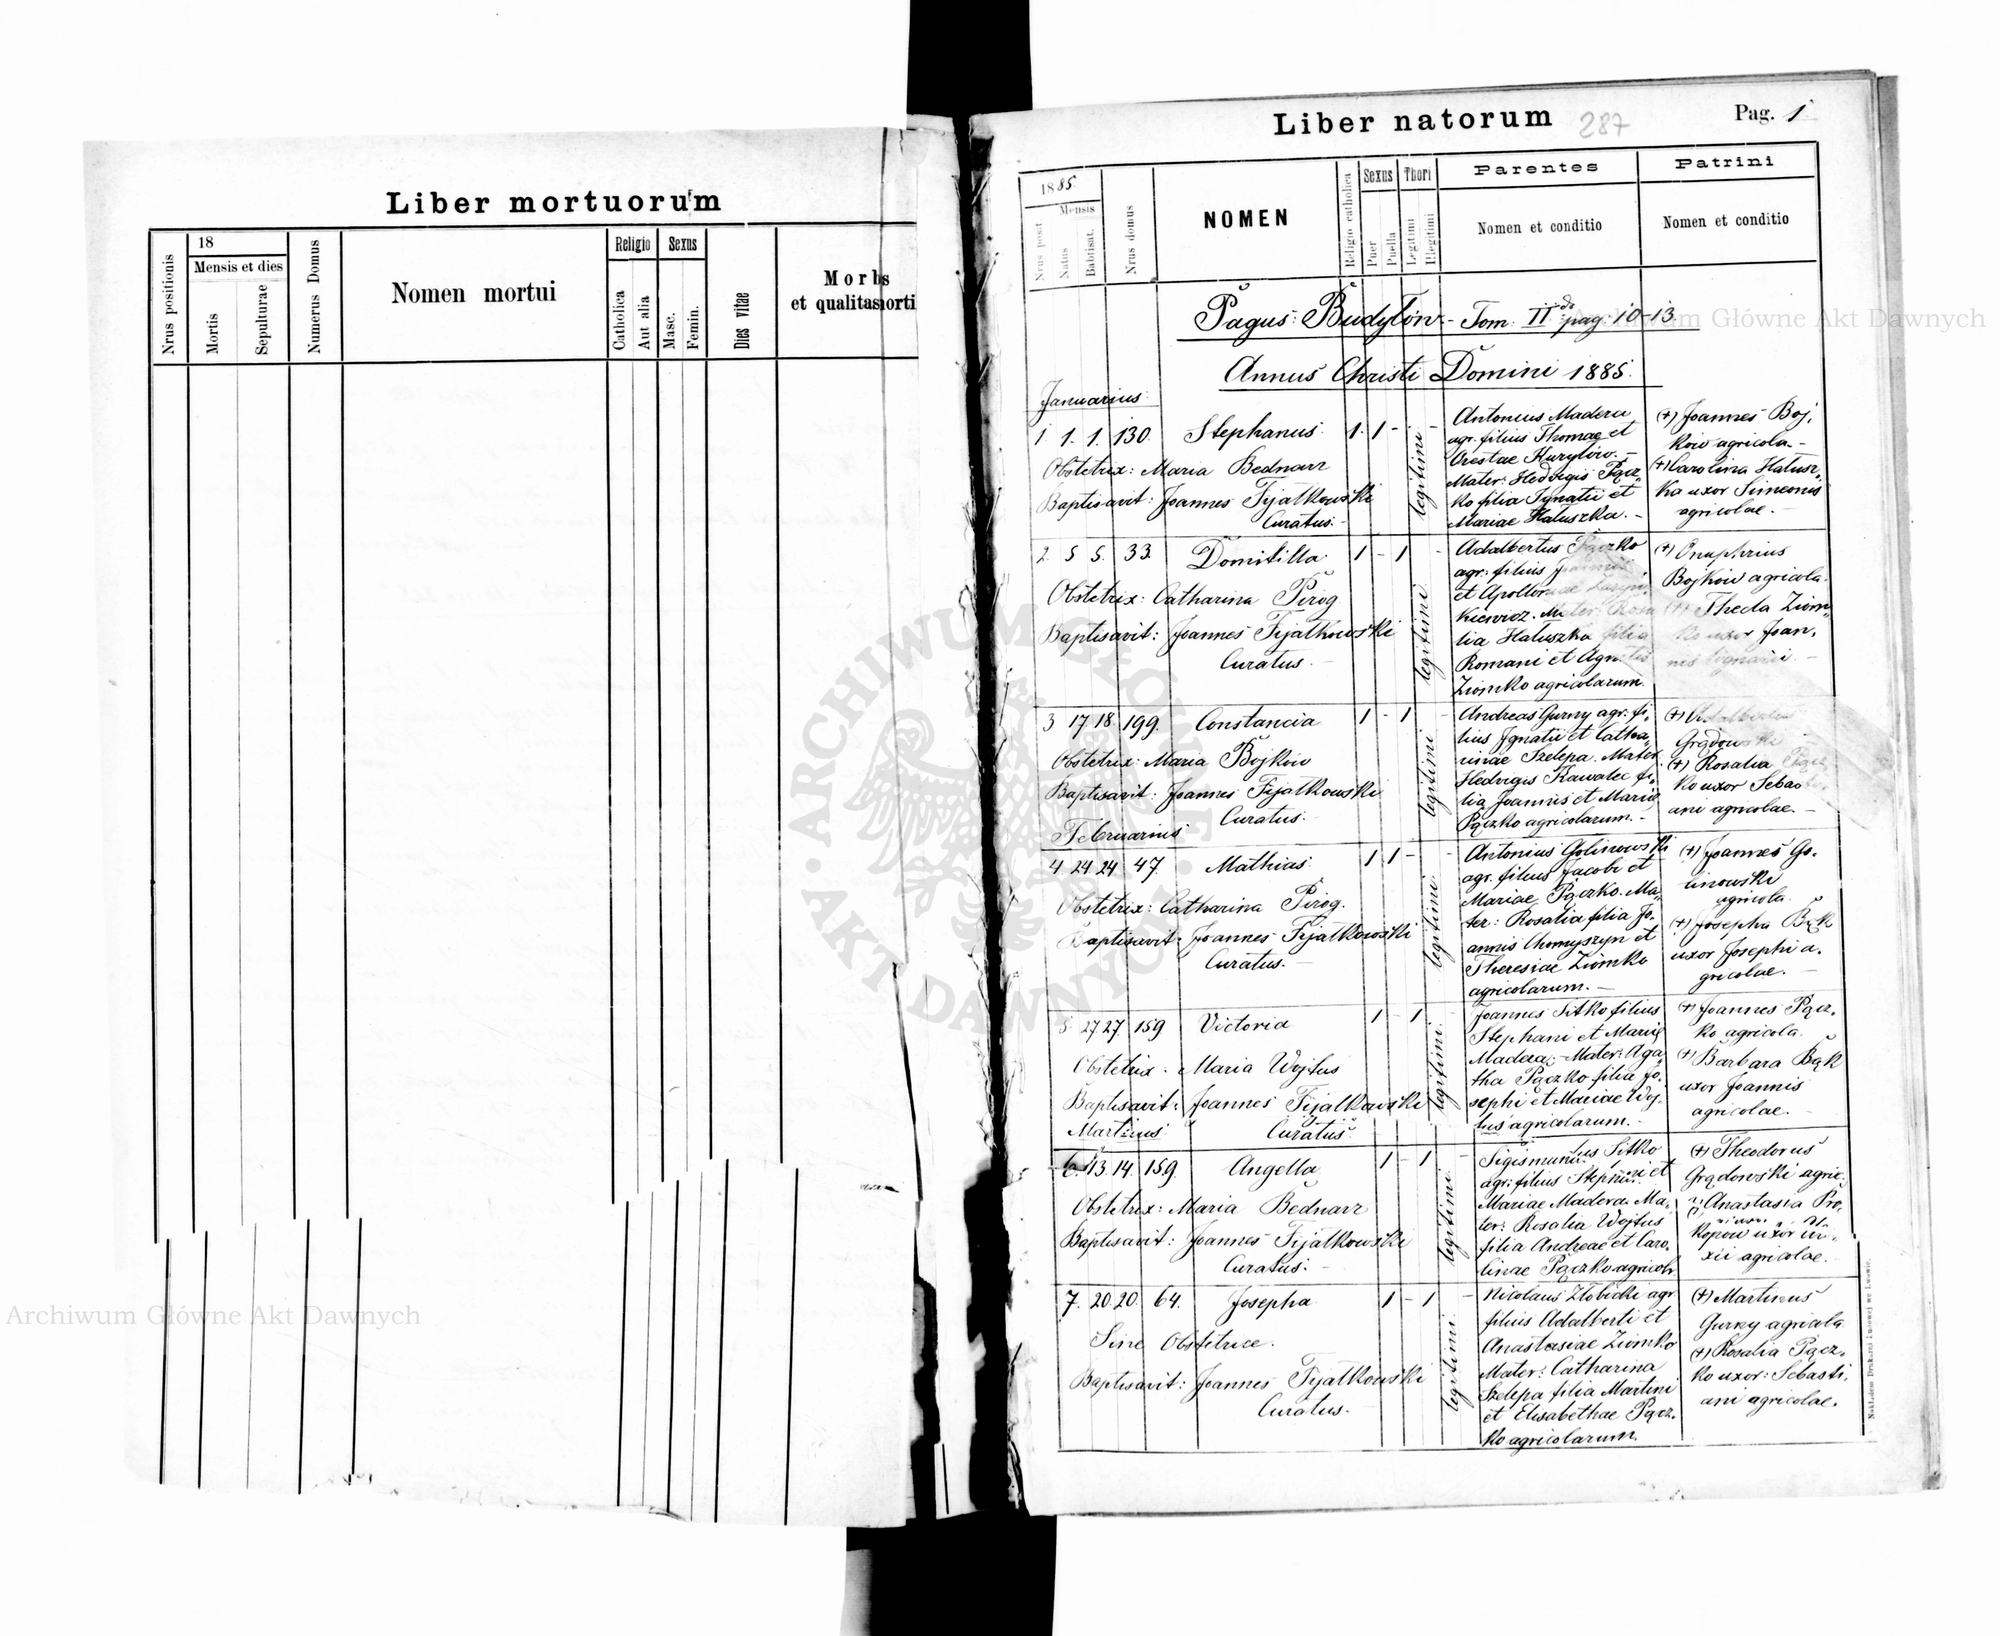 Liber mortuorum
Nrus positionis
18
Mensis et dies
Mortis
Sepulturae
Numerus Domus
Nomen mortui
Religio
Catholica
Aut alia
Sexus
Masc.
Femin.
Dies vitae
Morbs
et qualitas morti
Liber natorum
287
Pag. 1
1885.
Mensis
Nrus posit
Natus
Babtisat.
Nrus domus
NOMEN
Religio catholica
Sexus
Puer
Puella
Thori
Legitimi
Illegitimi
Parentes
Nomen et conditio
Patrini
Nomen et conditio
Pagus: Budyłów - Tom. II do pag: 10-13.
Annus Christi Domini 1885.
Januarius
1 1. 1. 130. Stephanus. 1. 1 - -
Obstetrix: Maria Bednarz
Baptisavit: Joannes Fijałkowski
Curatus. -
legitimi
Antonius Madera
agr. filius Thomae et
Orestae Kuryłów. -
Mater: Hedvigis Pącz„
ko filia Ignatii et
Mariae Hałuszka. -
(+) Joannes Boj„
ków agricola. -
(+) Carolina Hałusz„
ka uxor Simeonis
agricolae. -
2 5 5. 33. Domitilla. 1 - 1 -
Obstetrix: Catharina Pirog
Baptisavit: Joannes Fijałkowski
Curatus. -
legitimi
Adalbertus Pączko
agr: filius
et Apolloniae
kiewicz. Mater: Rosa
lia Hałuszka filia
Romani et Agnetis
Ziomko agricolarum.
(+) Onuphrius
Bojków agricola.
(+) Thecla Ziom„
ko uxor Joan„
nis lignarii. -
3 17 18 199. Constancia 1 - 1 -
Obstetrix: Maria Bojków
Baptisavit: Joannes Fijałkowski
Curatus. -
legitimi
Andreas Gurny agr: fi„
lius Ignatii et Catha„
rinae Szelepa. Mater:
Hedvigis Kawalec fi„
lia Joannis et Mariae
Pączko agricolarum. -
(+) Adalbertus
Grądowski
(+) Rosalia Pącz„
ko uxor Sebasti
ani agricolae. -
Februarius
4 24 24 47. Mathias. 1 1 - -
Obstetrix: Catharina Pirog.
Baptisavit: Joannes Fijałkowski
Curatus. -
legitimi
Antonius Golinowski
agr. filius Jacobi et
Mariae Pączko. Ma„
ter: Rosalia filia Jo„
annis Chomyszyn et
Theresiae Ziomko
agricolarum. -
(+) Joannes Go„
linowski
agricola.
(+) Josepha Bąk
uxor Josephi a„
gricolae. -
5. 27 27 159 Victoria 1 - 1 -
Obstetrix. Maria Wojtus
Baptisavit: Joannes Fijałkowski
Curatus.
legitimi
Joannes Sitko filius
Stephani et Mariae
Madera. - Mater: Aga„
tha Pączko filia Jo„
sephi et Mariae Woj„
tus agricolarum. -
(+) Joannes Pącz„
ko agricola.
(+) Barbara Bąk
uxor Joannis
agricolae. -
Martius
6. 13. 14. 159. Angella. 1 - 1 -
Obstetrix: Maria Bednarz
Baptisavit: Joannes Fijałkowski
Curatus. -
legitimi
Sigismundus Sitko
agr: filius Stephani et
Mariae Madera. Ma„
ter: Rosalia Wojtus
filia Andreae et Caro„
linae Pączko agricol:
(+) Theodorus
Grądowski agric:
(+) Anastasia Pro„
kopów uxor
xii agricolae. -
7. 20. 20. 64. Josepha. 1 - 1 -
Sine Obstetrice.
Baptisavit: Joannes Fijałkowski
Curatus. -
legitimi
Nicolaus Złobicki agr
filius Adalberti et
Anastasiae Ziomko
Mater: Catharina
Szelepa filia Martini
et Elisabethae Pącz„
ko agricolarum.
(+) Martinus
Gurny agricola
(+) Rosalia Pącz„
ko uxor: Sebasti„
ani agricolae.
Nakładem Drukarni Ludowej we Lwowie.
Archiwum Główne Akt Dawnych
Archiwum Główne Akt Dawnych
ARCHIWUM GŁÓWNE AKT DAWNYCH